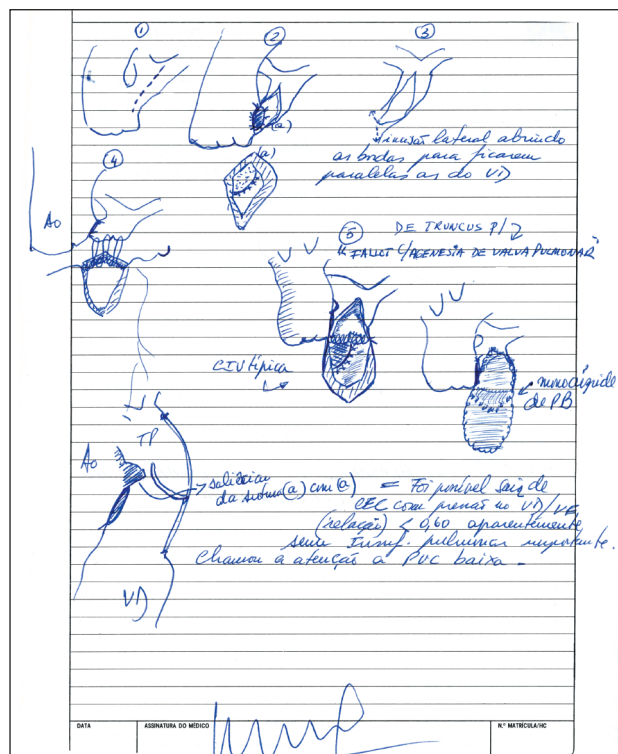 1
2
3
(a)
(a)
incisão lateral abrindo
as bordas para ficarem
paralelas as do VD
4
Ao
5
DE TRUNCUS P/
"FALLOT C/AGENESIA DE VALVA PULMONAR"
CIV típica
monocúspide
de PB
TP
Ao
da sutura (a) com (a)
= Foi possível sair de
CEC com pressão no VD/VE
(relação) < 0,60 aparentemente
sem Insuf. pulmonar importante.
Chamou a atenção a PVC baixa.
VD
DATA
ASSINATURA DO MÉDICO
N.º MATRÍCULA/HC